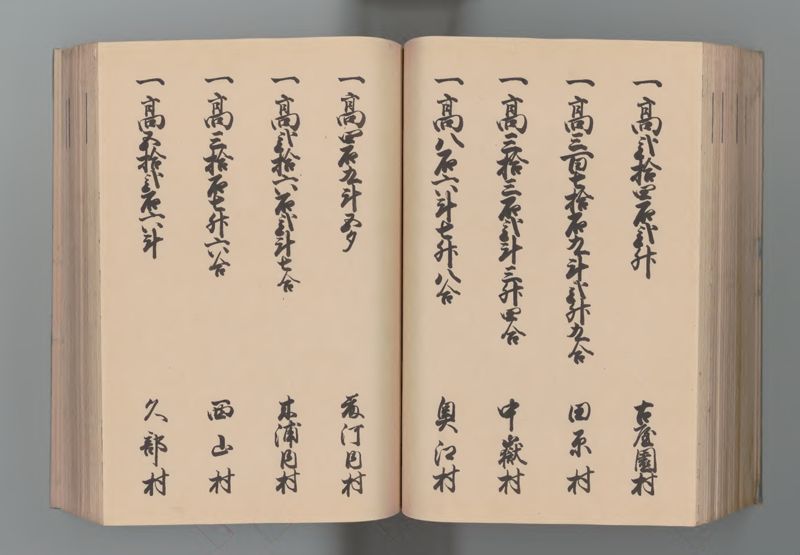 一高弐拾四石弐升 古屋園村
一高三百七拾石九斗弐升九合 田原村
一高三拾三石弐斗三升四合 中嶽村
一高八石六斗七升八合 奥江村
一高四石九斗五夕 村
一高弐拾六石弐斗七合 村
一高三拾石七升六合 西山村
一高五拾弐石六斗 久部村